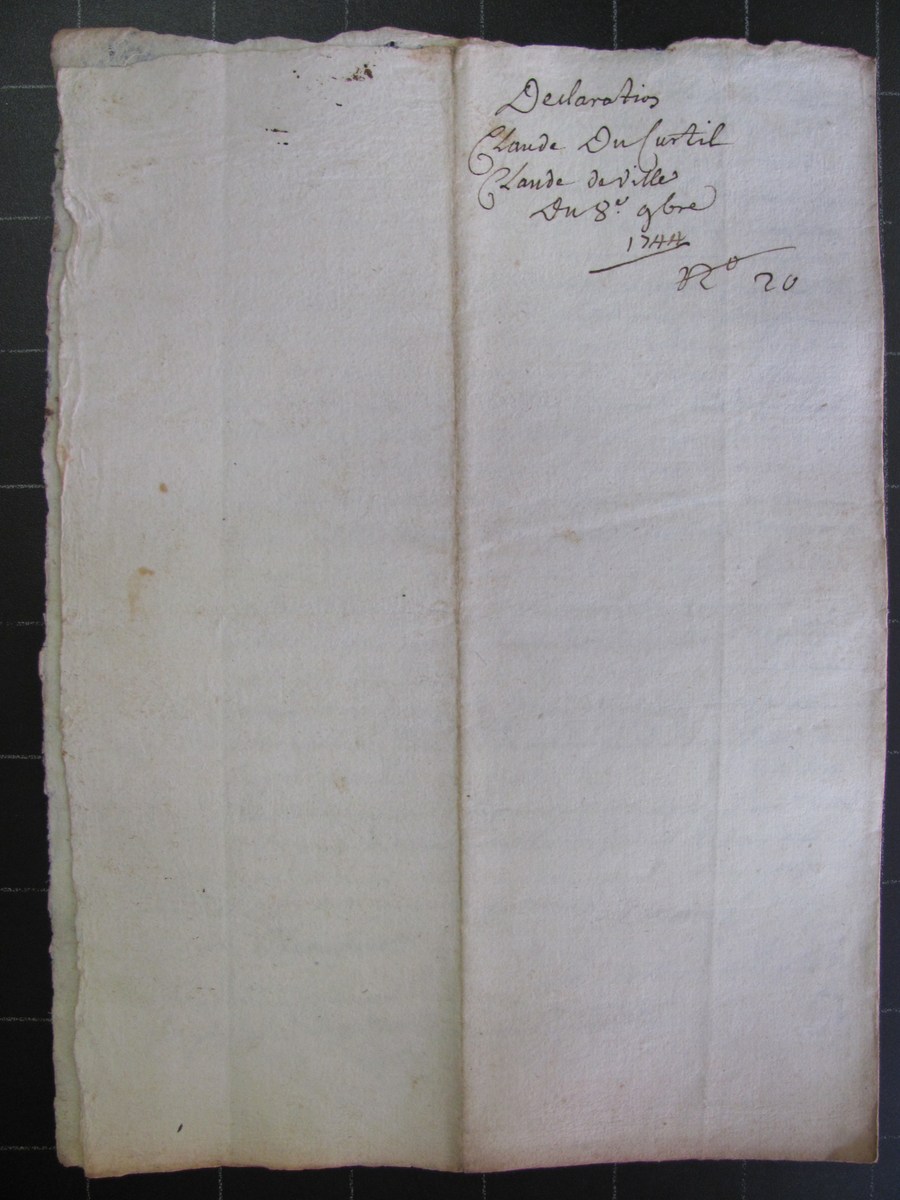 Declaration
Claude Du Curtil
Claude deville
Du 8e. 9bre
1744
No 20